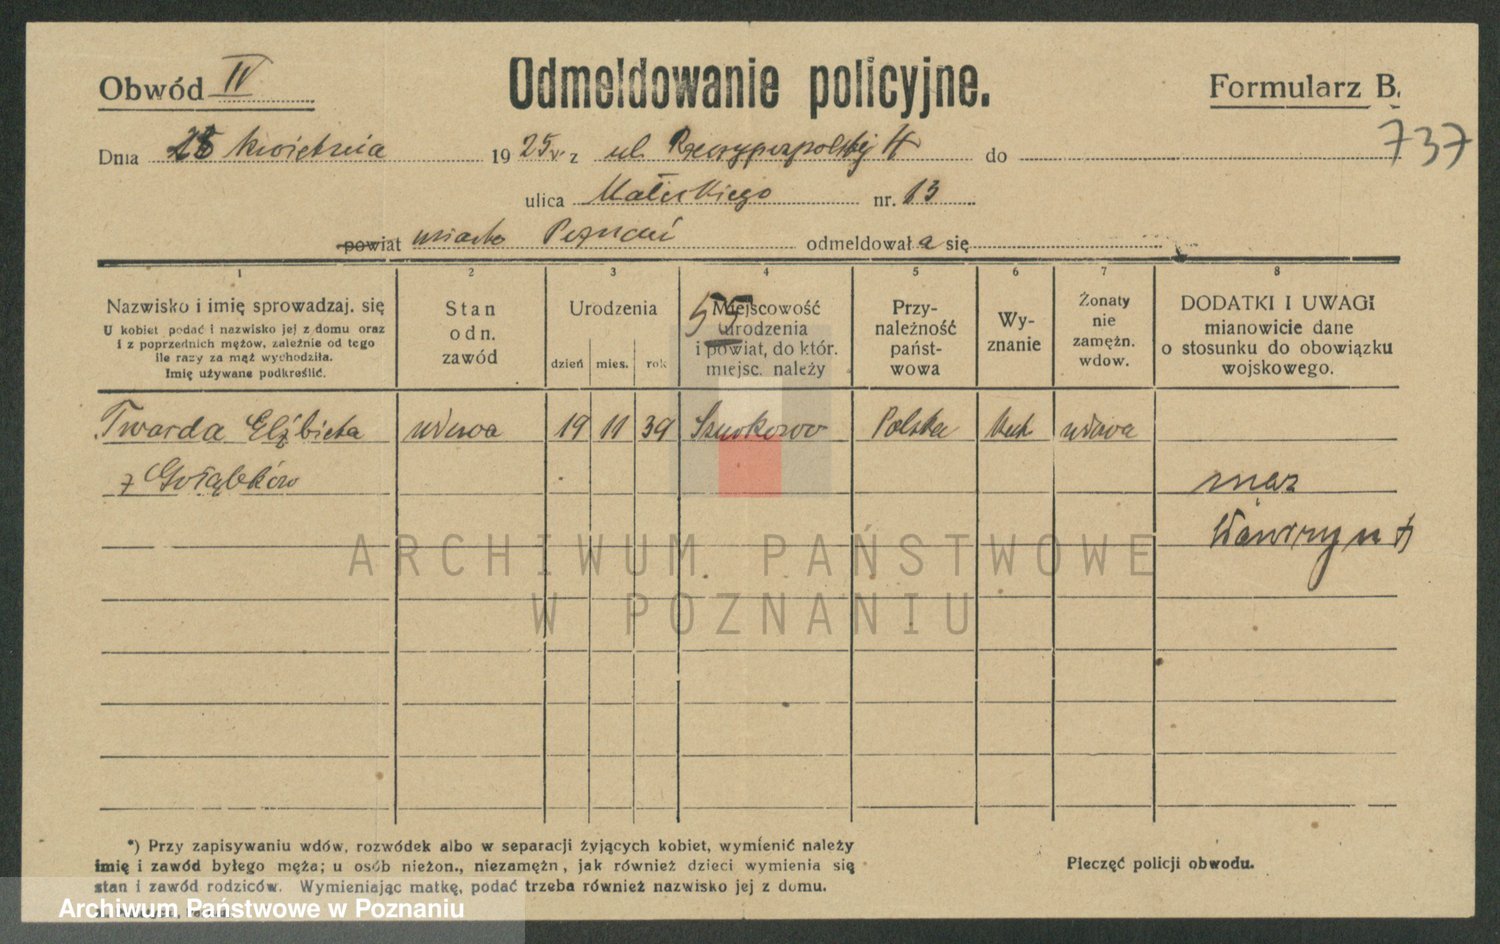 Obwód IV
Odmeldowanie policyjne.
Formularz B.
737
Dnia 25 kwietnia 1925 r. z ul. Rzeczypospolitej 4 do
ulica Małeckiego nr. 13
powiat miasto Poznań odmeldował a się
1 2 3 4 5 6 7 8
Nazwisko i imię sprowadzaj. się
U kobiet podać i nazwisko jej z domu oraz
i z poprzednich mężów, zależnie od tego
ile razy za mąż wychodziła.
Imię używane podkreślić.
Stan
odn.
zawód
Urodzenia
dzień mies. rok
55
Miejscowość
urodzenia
i powiat, do któr.
miejsc. należy
Przy-
należność
państ-
wowa
Wy-
znanie
Żonaty
nie
zamężn.
wdow.
DODATKI I UWAGI
mianowicie dane
o stosunku do obowiązku
wojskowego.
Twarda Elżbieta wdowa 19 11 39 Polska kat wdowa
z Gołąbków
mąż
Wawrzyn
ARCHIWUM PAŃSTWOWE
W POZNANIU
*) Przy zapisywaniu wdów, rozwódek albo w separacji żyjących kobiet, wymienić należy
imię i zawód byłego męża; u osób nieżon., niezamężn, jak również dzieci wymienia się
stan i zawód rodziców. Wymieniając matkę, podać trzeba również nazwisko jej z domu.
Pieczęć policji obwodu.
Archiwum Państwowe w Poznaniu